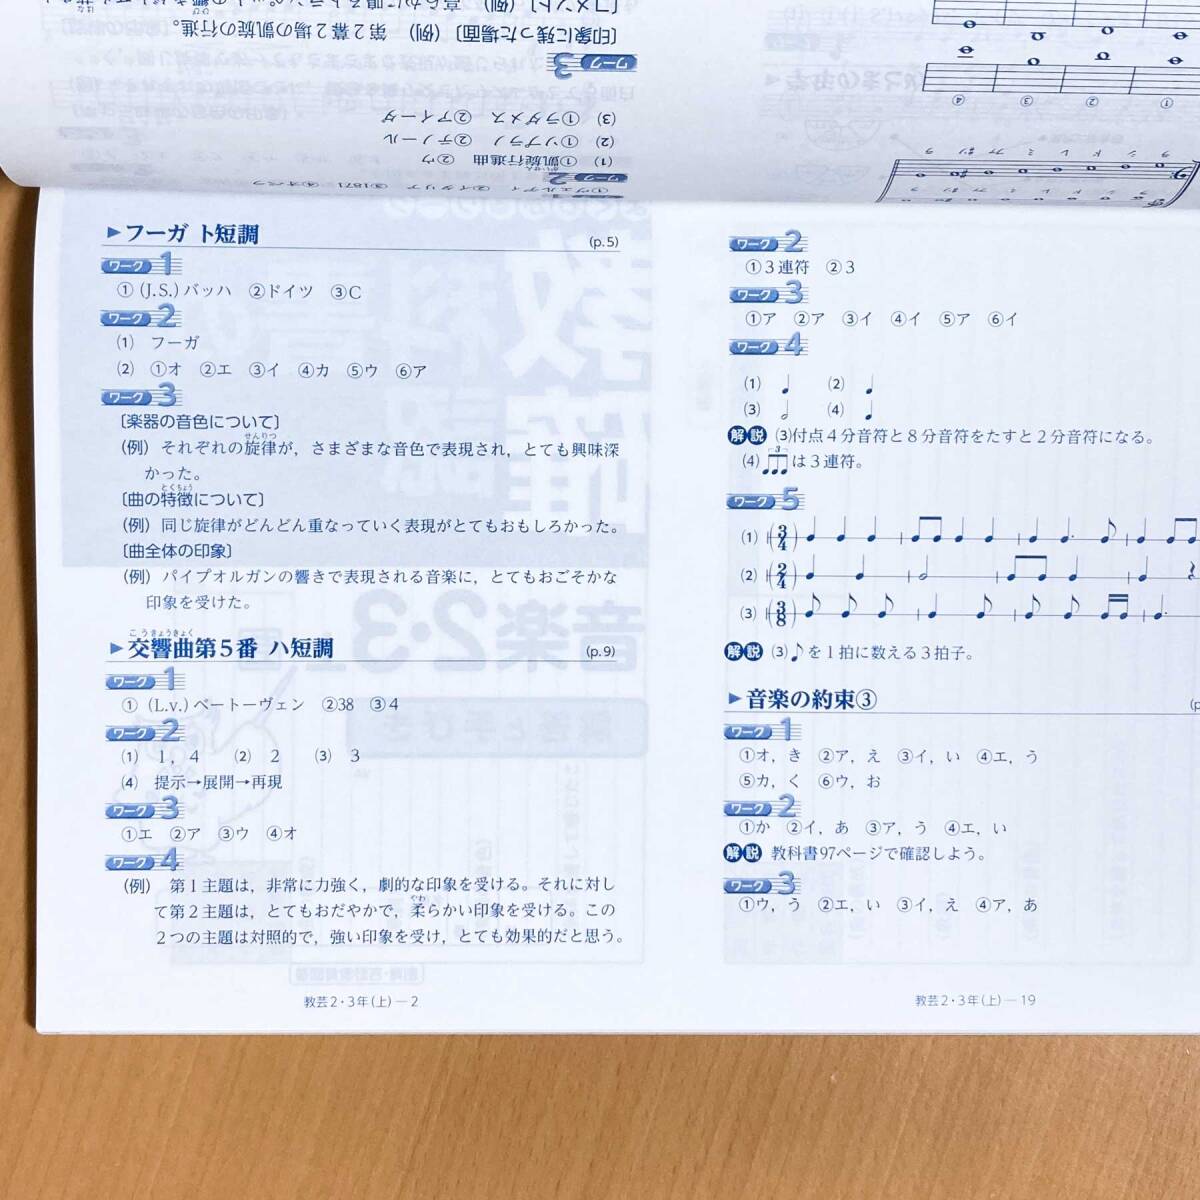 [印象に残った場面] (例) 第2幕2場の凱旋の行進。
ワーク3
(3) ①ラダメス ②アイーダ
(2) ①ソプラノ ②テノール
(1) ①凱旋行進曲 ②ウ
ワーク2
①ヴェルディ ②イタリア ③1871 ④オペラ
④ ③ ② ①
ラ ソ ファ ミ レ ド シ ラ
▶フーガ ト短調 (p.5)
ワーク1
①(J.S.)バッハ ②ドイツ ③C
ワーク2
(1) フーガ
(2) ①オ ②エ ③イ ④カ ⑤ウ ⑥ア
ワーク3
〔楽器の音色について〕
(例) それぞれの旋律が，さまざまな音色で表現され，とても興味深
かった。
〔曲の特徴について〕
(例) 同じ旋律がどんどん重なっていく表現がとてもおもしろかった。
〔曲全体の印象〕
(例) パイプオルガンの響きで表現される音楽に，とてもおごそかな
印象を受けた。
▶交響曲第5番 ハ短調 (p.9)
ワーク1
①(L.v.)ベートーヴェン ②38 ③4
ワーク2
(1) 1，4 (2) 2 (3) 3
(4) 提示→展開→再現
ワーク3
①エ ②ア ③ウ ④オ
ワーク4
(例) 第1主題は，非常に力強く，劇的な印象を受ける。それに対し
て第2主題は，とてもおだやかで，柔らかい印象を受ける。この
2つの主題は対照的で，強い印象を受け，とても効果的だと思う。
教芸2・3年(上)―2
ワーク2
①3連符 ②3
ワーク3
①ア ②ア ③イ ④イ ⑤ア ⑥イ
ワーク4
(1) ♩ (2) ♩
(3) (4) ♩
解説 (3)付点4分音符と8分音符をたすと2分音符になる。
(4) は3連符。
ワーク5
(1) 3/4
(2) 2/4
(3) 3/8
解説 (3)♪を1拍に数える3拍子。
▶音楽の約束③
ワーク1
①オ，き ②ア，え ③イ，い ④エ，う
⑤カ，く ⑥ウ，お
ワーク2
①か ②イ，あ ③ア，う ④エ，い
解説 教科書97ページで確認しよう。
ワーク3
①ウ，う ②エ，い ③イ，え ④ア，あ
教芸2・3年(上)―19